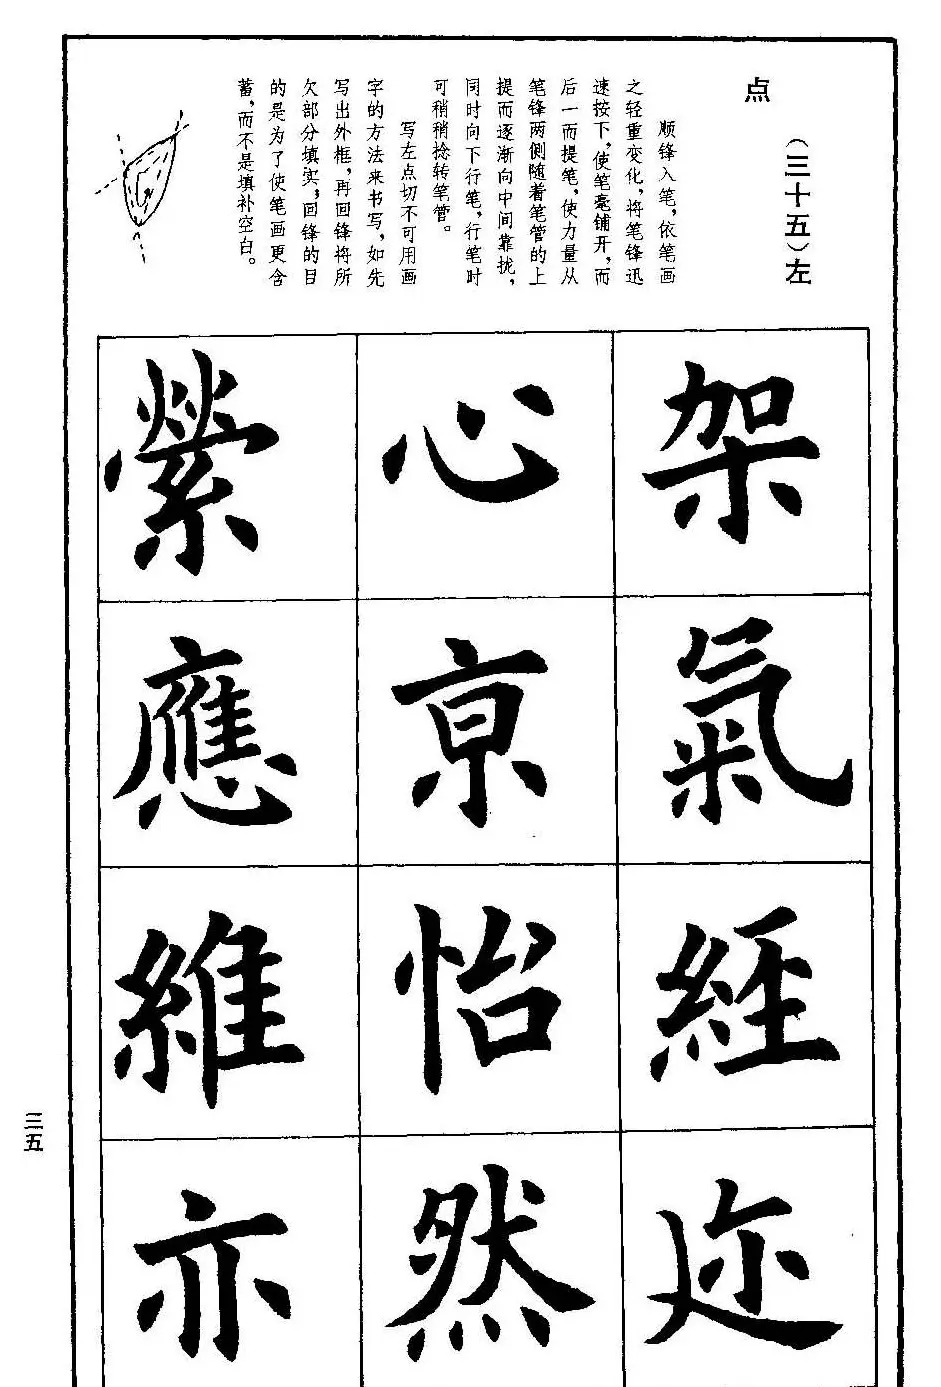 （三十五）左
点
顺锋入笔，依笔画
之轻重变化，将笔锋迅
速按下，使笔毫铺开，而
后一而提笔，使力量从
笔锋两侧随着笔管的上
提而逐渐向中间靠拢，
同时向下行笔，行笔时
可稍稍捻转笔管。
写左点切不可用画
字的方法来书写，如先
写出外框，再回锋将所
欠部分填实，回锋的目
的是为了使笔画更含
蓄，而不是填补空白。
架
氣
經
迹
心
京
怡
然
縈
應
維
亦
三五